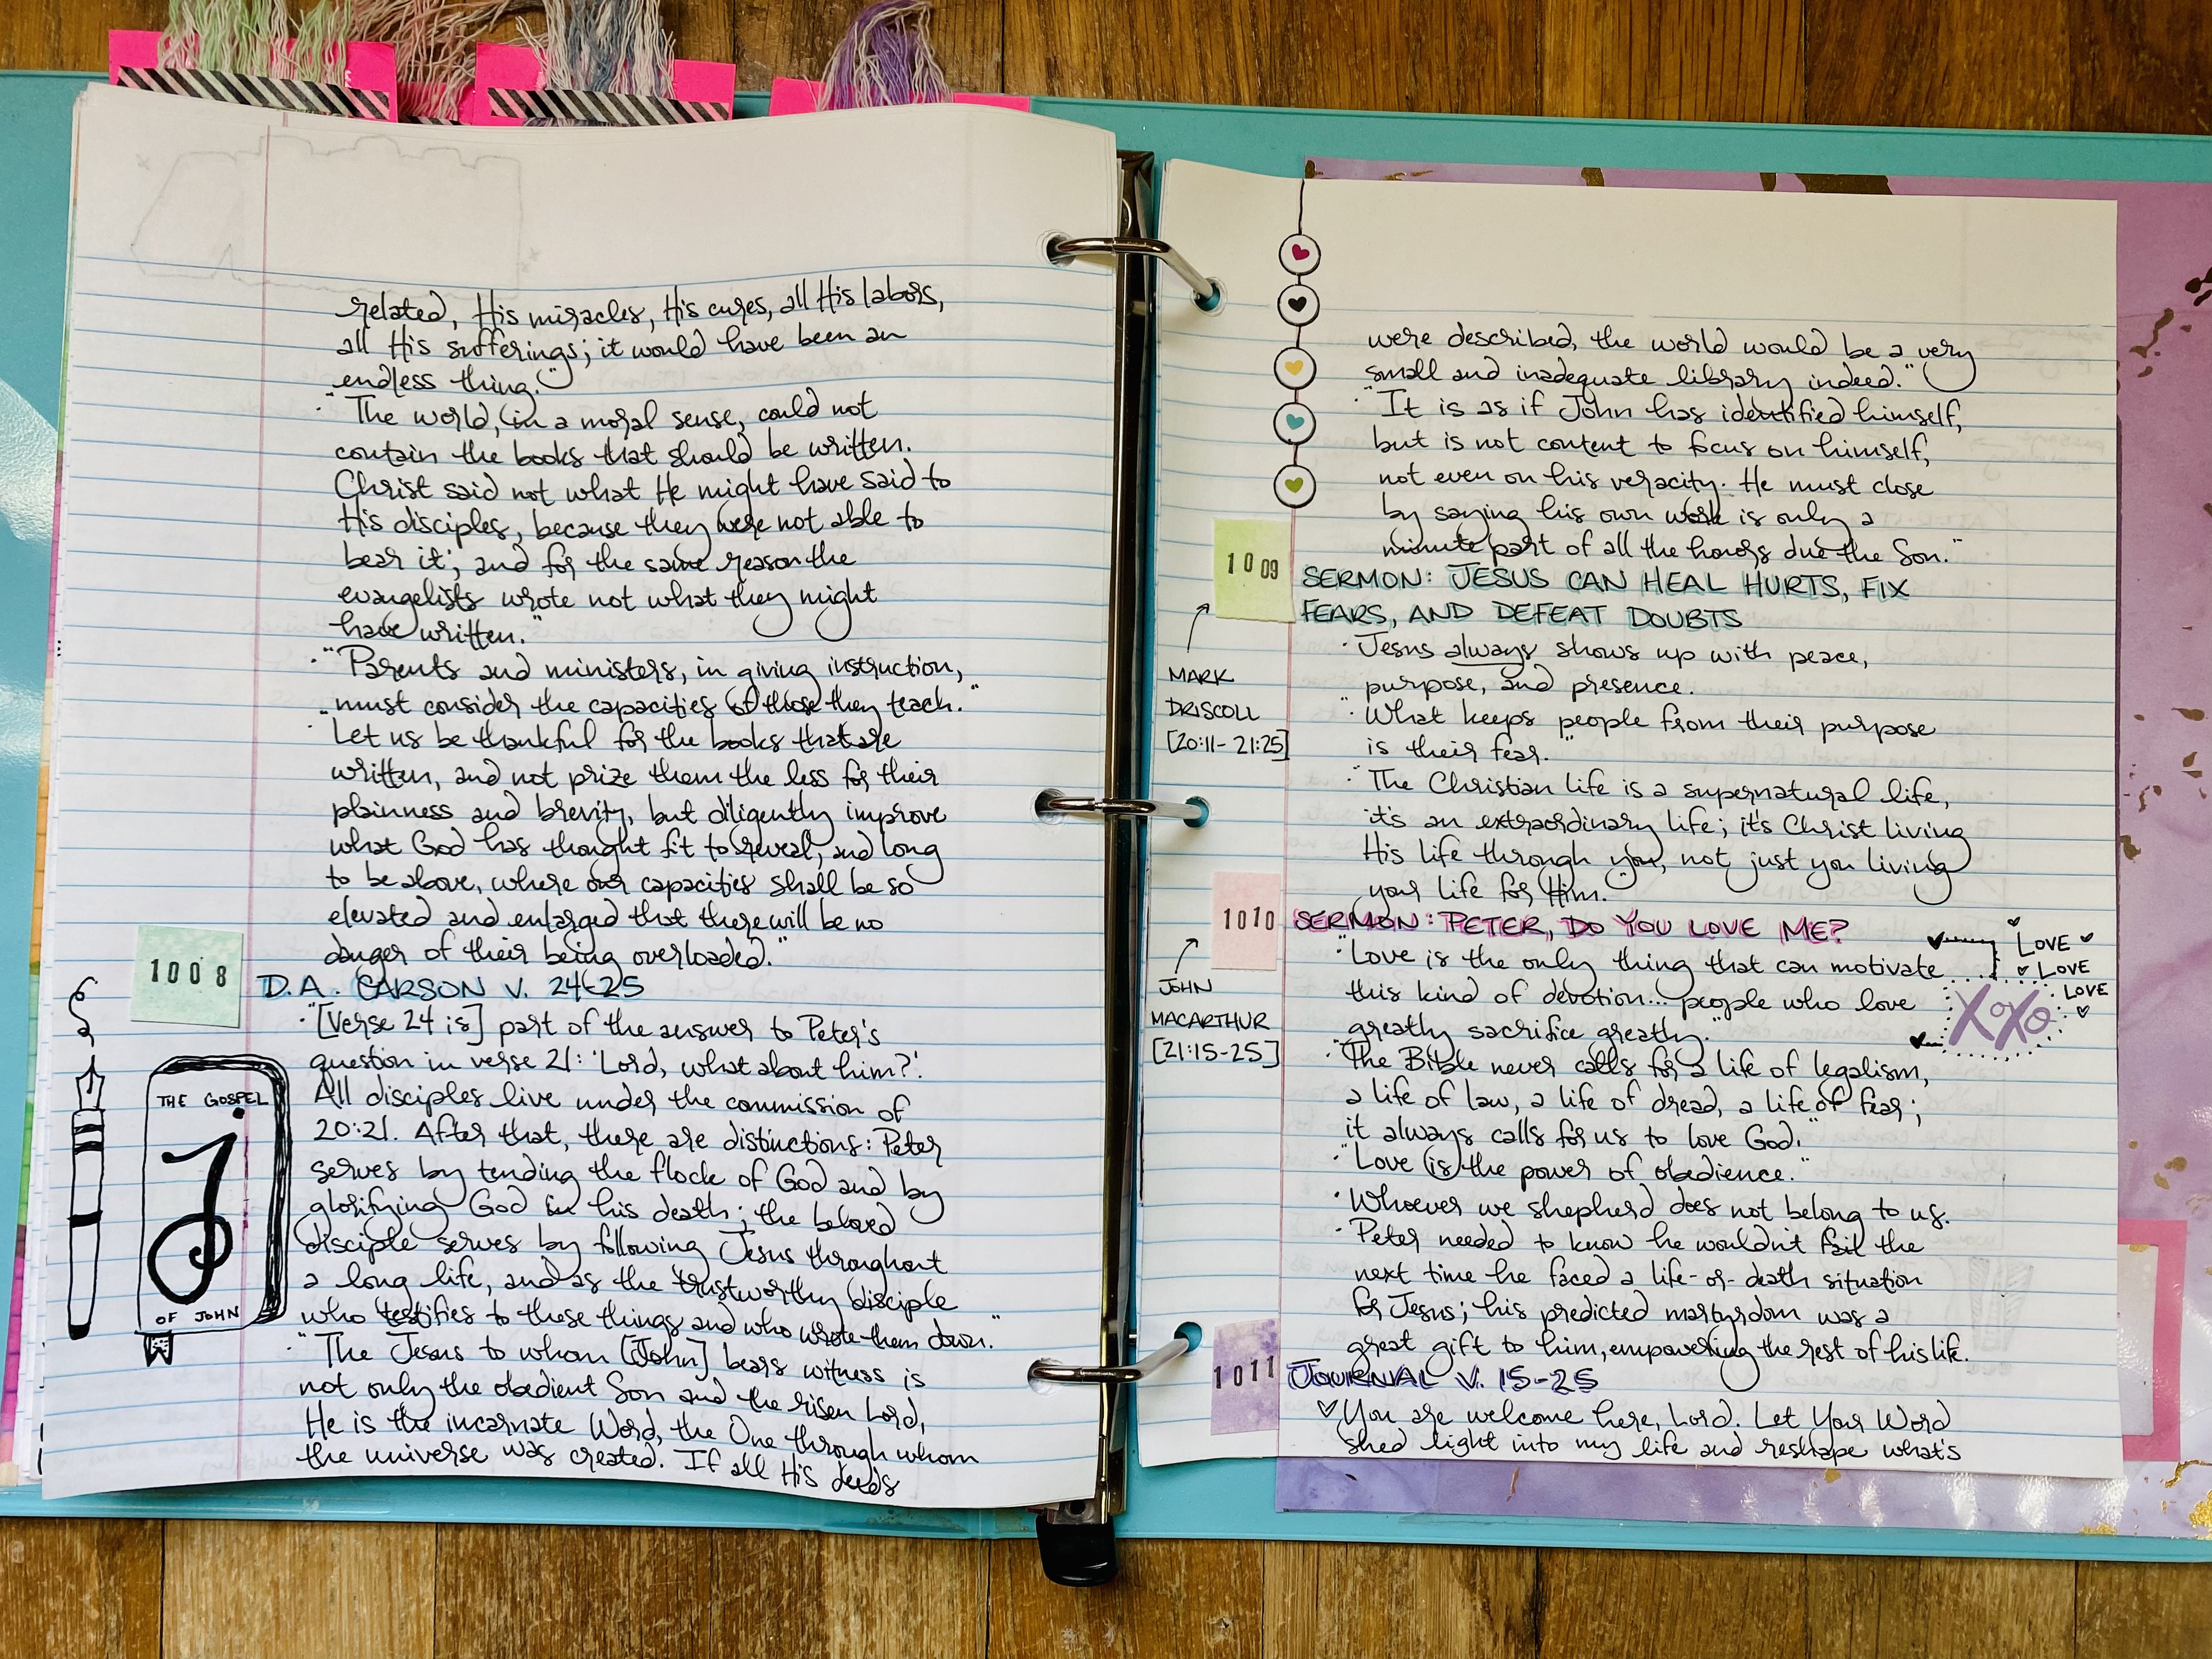 related, His miracles, His cures, all His labors,
all His sufferings; it would have been an
endless thing."
· "The world, in a moral sense, could not
contain the books that should be written.
Christ said not what He might have said to
His disciples, because they were not able to
bear it; and for the same reason the
evangelists wrote not what they might
have written."
· "Parents and ministers, in giving instruction,
must consider the capacities of those they teach."
· "Let us be thankful for the books that are
written, and not prize them the less for their
plainness and brevity, but diligently improve
what God has thought fit to reveal, and long
to be above, where our capacities shall be so
elevated and enlarged that there will be no
danger of their being overloaded."
1008
D.A. CARSON V. 24-25
· "[Verse 24 is] part of the answer to Peter's
question in verse 21: 'Lord, what about him?'.
All disciples live under the commission of
20:21. After that, there are distinctions: Peter
serves by tending the flock of God and by
glorifying God in his death; the beloved
disciple serves by following Jesus throughout
a long life, and as the trustworthy disciple
who testifies to these things and who wrote them down."
· "The Jesus to whom [John] bears witness is
not only the obedient Son and the risen Lord,
He is the incarnate Word, the One through whom
the universe was created. If all His deeds
THE GOSPEL
J
OF JOHN
were described, the world would be a very
small and inadequate library indeed."
· "It is as if John has identified himself,
but is not content to focus on himself,
not even on his veracity. He must close
by saying his own work is only a
minute part of all the honors due the Son."
1009
SERMON: JESUS CAN HEAL HURTS, FIX
FEARS, AND DEFEAT DOUBTS
MARK
DRISCOLL
[20:11-21:25]
· Jesus always shows up with peace,
purpose, and presence.
· "What keeps people from their purpose
is their fear."
· "The Christian life is a supernatural life,
it's an extraordinary life; it's Christ living
His life through you, not just you living
your life for Him.
1010
SERMON: PETER, DO YOU LOVE ME?
JOHN
MACARTHUR
[21:15-25]
· "Love is the only thing that can motivate
this kind of devotion... people who love
greatly sacrifice greatly."
LOVE
LOVE
LOVE
XOXO
· "The Bible never calls for a life of legalism,
a life of law, a life of dread, a life of fear;
it always calls for us to love God."
· "Love is the power of obedience."
· Whoever we shepherd does not belong to us.
· Peter needed to know he wouldn't fail the
next time he faced a life-or-death situation
for Jesus; his predicted martyrdom was a
great gift to him, empowering the rest of his life.
1011
JOURNAL V. 15-25
♡ You are welcome here, Lord. Let Your Word
shed light into my life and reshape what's